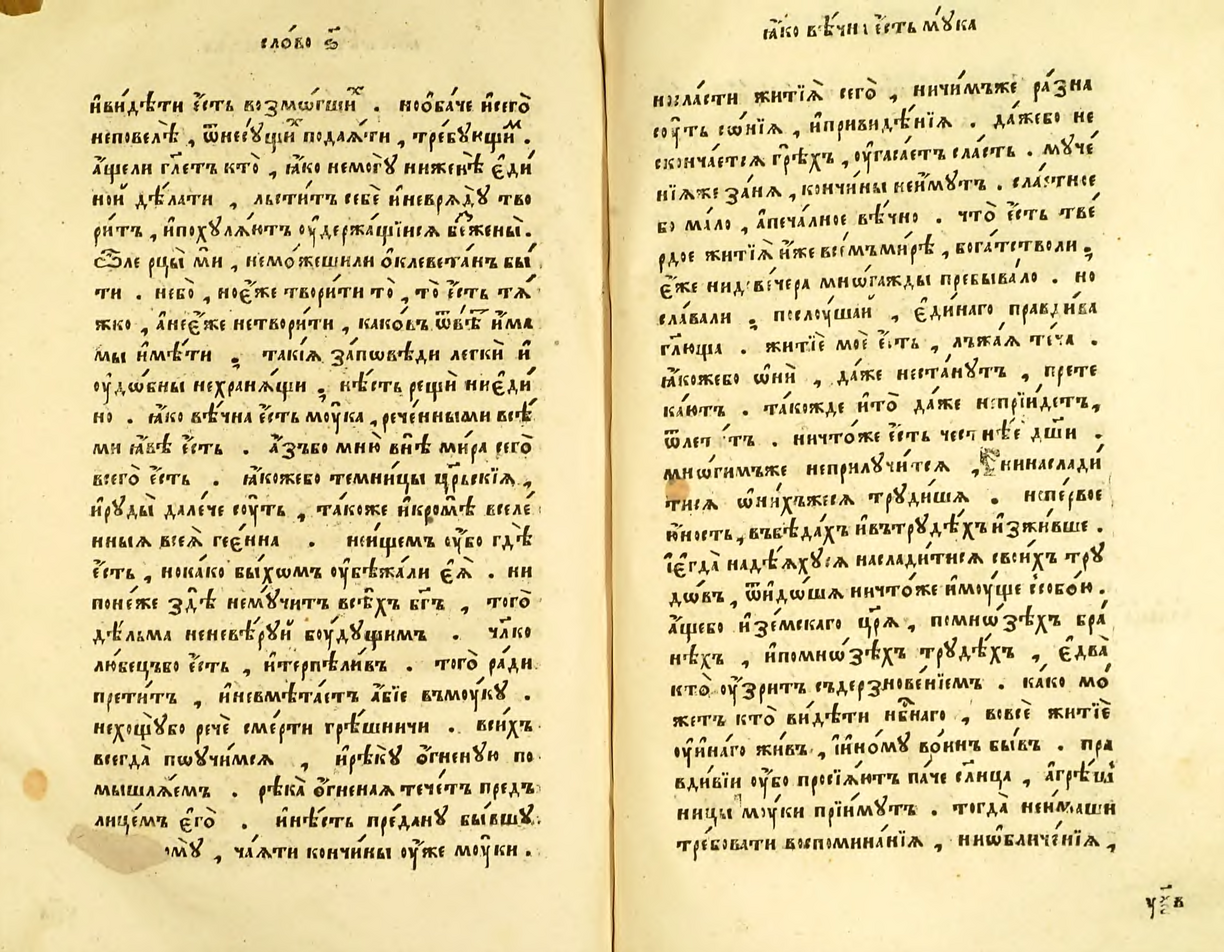 сло́во ѕ҃
и҆ви́дѣти є҆́сть возмо́гшиⷯ . ноѻ҆ба́че и҆сегѡ̀
неповелѣ̀ , ѿнесꙋ́щиⷯ подаѧ́ти , тре́бꙋющиⷨ .
а҆́щели гл҃етъ кто̀ , ꙗ҆́ко немогꙋ̀ ниженѣ̀ є҆ди
ной дѣ́лати , льсти́тъ себѐ и҆неврѧдꙋ̀ тво
ри́тъ , и҆похꙋлѧ́ютъ оу҆держа́щїисѧ бж҃ены̀ .
Ѽле рцы́ ми , немо́жешили ѻ҆клевета́нъ бы́
ти . небо̀ , ноє҆́же твори́ти то̀ , то̀ є҆́сть тѧ́
жко , а҆неє҆́же нетвори́ти , како́въ ѿвѣ́тъ и҆́ма
мы и҆мѣ́ти ; такі́ѧ за́пѡвѣди легкѝ и҆
оу҆до́бны нехранѧ́щи ; нѣ́сть рещѝ ниє҆ди́
но . ꙗ҆́ко вѣ́чна є҆́сть моу́ка , рече́нными всѣ́
ми ꙗ҆́вѣ є҆́сть . а҆́зъбо мню̀ внѣ̀ ми́ра сегѡ̀
всегѡ̀ є҆́сть . ꙗ҆́кожебо темни́цы цр҃ьскїѧ ,
и҆рꙋды̀ дале́че соу́ть , та́коже и҆кро́мѣ вселе́
нныѧ всеѧ̀ гее́нна . неи́щемъ оу҆̀бо гдѣ̀
є҆́сть , нока́ко бы́хомъ оу҆бѣжа́ли є҆ѧ̀ . ни
поне́же здѣ̀ немꙋ́читъ всѣ́хъ бг҃ъ , того̀
дѣ́льма неневѣ́рꙋй боу́дꙋщимъ . чл҃ко
лю́бецъбо є҆́сть , и҆терпѣли́въ . того̀ ра́ди
прети́тъ , и҆невмѣта́етъ а҆́бїе въмоу́кꙋ .
нехощꙋ́бо речѐ сме́рти грѣ́шничи . всѝхъ
всегда̀ поꙋчи́мсѧ , и҆рѣ́кꙋ ѻ҆́гненꙋю по
мышлѧ́емъ . рѣка̀ ѻ҆́гненаѧ тече́тъ предъ
лице́мъ є҆гѡ̀ . и҆нѣ́сть пре́данꙋ бы́вшꙋ
омꙋ̀ , ча́ѧти кончи́ны оу҆́же моу́ки .
ꙗ҆́ко вѣ́чна є҆́сть мꙋ́ка
нисла́сти житїѧ̀ сегѡ̀ , ничи́мъже ра́зна
соу́ть со́нїѧ , и҆привидѣ́нїѧ . да́жебо не
сконча́етсѧ грѣ́хъ , оу҆гаса́етъ сла́сть . мꙋче́
нїѧже за́нѧ , кончи́ны неи́мꙋтъ . сла́стное
бо ма́ло , а҆печа́лное вѣ́чно . что̀ є҆́сть тве́
рдое житїѧ̀ и҆́же всемъми́рѣ , бога́тстволи ;
є҆́же нидове́чера мно́гажды пребыва́ло . но
сла́вали ; послоу́шай , є҆ди́наго пра́вдива
гл҃юща . житїѐ моѐ є҆́сть , лъжа́ѧ теча̀ .
ꙗ҆́кожебо ѻ҆нѝ , да́же неста́нꙋтъ , прете
ка́ютъ . та́кожде и҆то̀ да́же непрїи́детъ ,
ѿлети́тъ . ничто́же є҆́сть честнѣ́е дш҃и .
мно́гимъже неприлꙋчи́тсѧ , нинаслади́
тисѧ ѻ҆ни́хъжесѧ трꙋди́шѧ . и҆спе́рвое
ю҆́ность , въбѣда́хъ и҆вътрꙋдѣ́хъ и҆зжи́вше .
і҆є҆гда̀ надѣ́ѧхꙋсѧ наслади́тисѧ свои́хъ трꙋ
до́въ , ѿидо́шѧ ничто́же и҆мꙋ́ще собо́ю .
а҆́щебо и҆зе́мскаго цр҃ѧ̀ , помно́зѣхъ бра́
нѣхъ , и҆помно́зѣхъ трꙋдѣ́хъ , є҆два̀
кто̀ оу҆́зритъ съдерзнове́нїемъ . ка́ко мо́
жетъ кто̀ ви́дѣти нб҃наго , во́всѐ житїѐ
оу҆и́наго жи́въ , і҆и҆но́мꙋ во́инъ бы́въ . пра́
вдивїи оу҆́бо просїѧ́ютъ па́че сл҃нца , а҆грѣ́ш
ницы моу́ки прїи́мꙋтъ . тогда̀ неи́маши
тре́бовати воспомина́нїѧ , ниѡ҆бличе́нїѧ ,